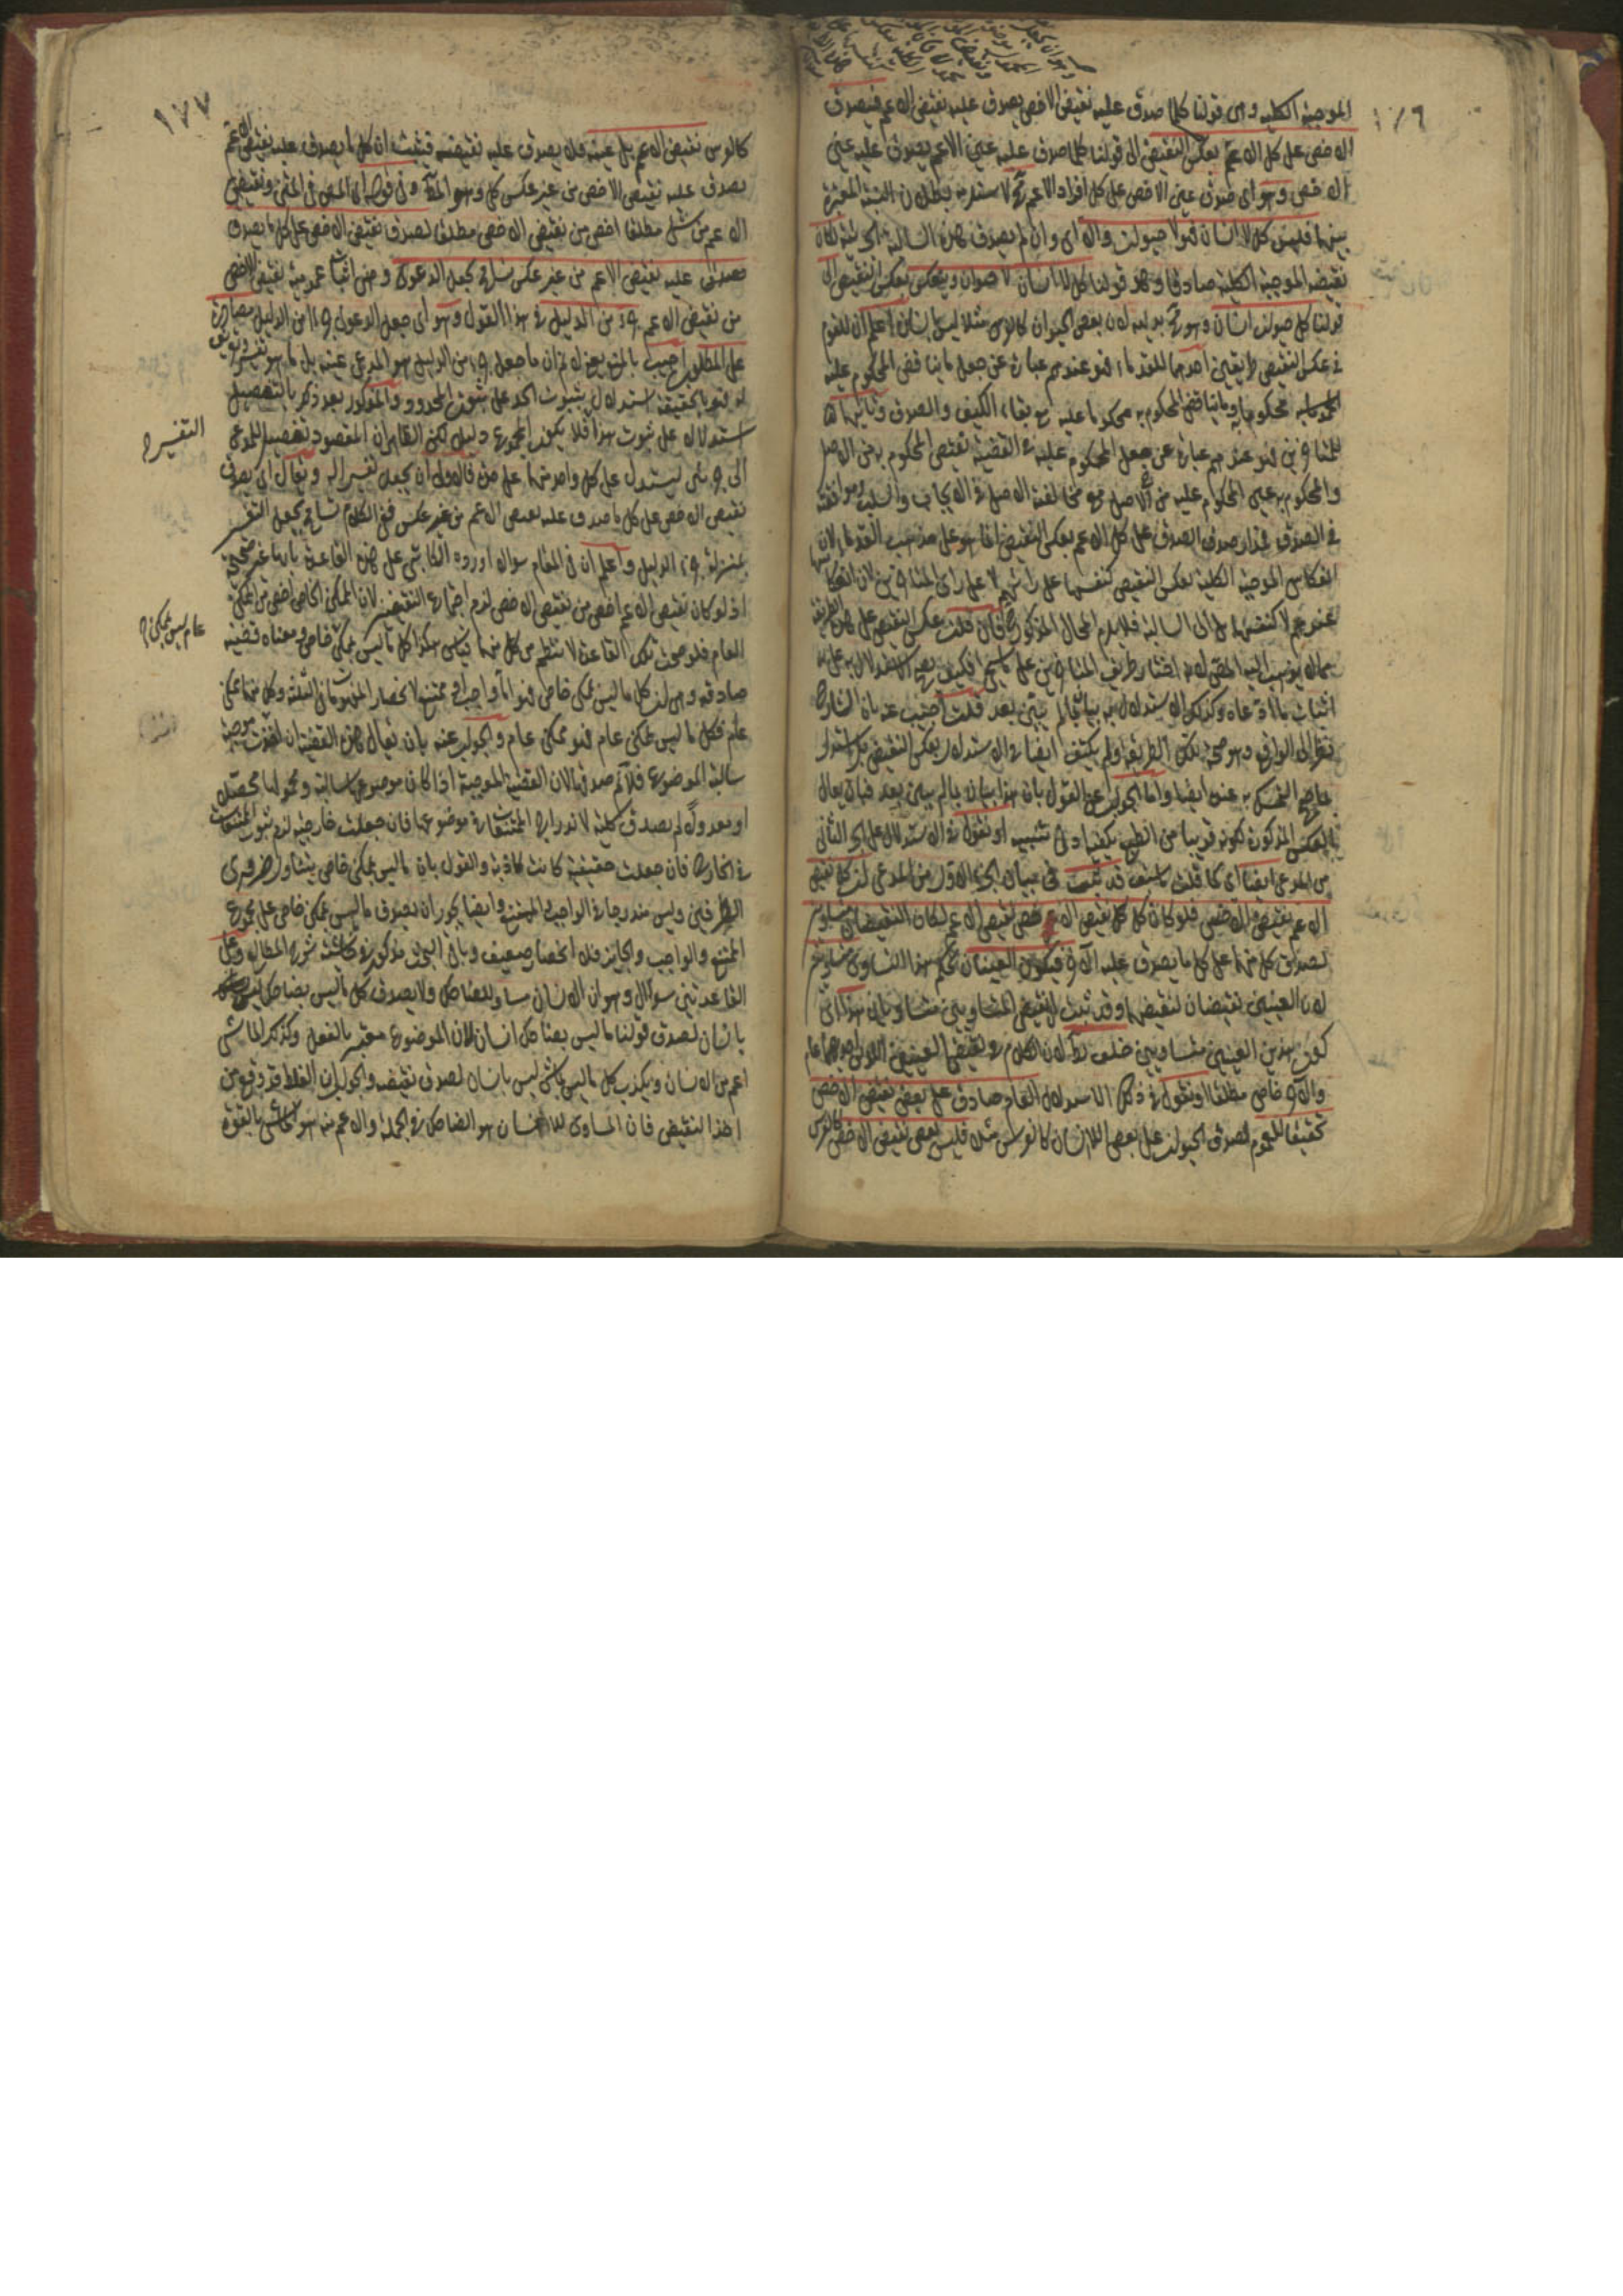 ١٧٦
الموجبة الكلية وهى قولنا كلما صدق عليه نقيض الاخص يصدق عليه نقيض الاعم فيصدق
الاخص على كل الاعم بعكس النقيض الى قولنا كل ما صدق عليه عين الاعم يصدق عليه عين
الاخص وهو اى صدق عين الاخص على كل افراد الاعم مح لاستلزامه بطلان النسبة المعتبرة
بينهما فليس كل لا انسان فهو لا حيوان والا اى وان لم يصدق هذه السالبة الجزئية لكان
نقيضه الموجبة الكلية صادقا وهو قولنا كل لا انسان لا حيوان وينعكس بعكس النقيض الى
قولنا كل حيوان انسان وهو مح بديهة لان بعض الحيوان كالفرس مثلا ليس بانسان اعلم ان للقوم
فى عكس النقيض طريقين احدهما للقدماء فهو عندهم عبارة عن جعل ما يناقض المحكوم عليه
محكوما به وما يناقض المحكوم به محكوما عليه مع بقاء الكيف والصدق وثانيهما
للمتاخرين فهو عندهم عبارة عن جعل المحكوم عليه فى القضية نقيض المحكوم به فى الاصل
والمحكوم به عين المحكوم عليه من الاصل مع مخالفة الاصل فى الايجاب والسلب وموافقته
فى الصدق صدق الصدق على كل الاعم بعكس النقيض انما هو على مذهب القدماء لان
انعكاس الموجبة الكلية بعكس النقيض كنفسها على رائهم لا على راى المتاخرين لان انعكاسها
عندهم لا كنفسها بل الى السالبة فلا يلزم المحال المذكور فان قلت عكس النقيض على هذه الطريقة
مما لا يذهب اليه المص لانه اختار طريق المتاخرين على ما سيجئ فكيف يصح الاستدلال به على
اثبات ما ادعاه وكذلك الاستدلال به بيان بما لم يتبين بعد قلت اجيب عنه بان الشارح
نظر الى الواقع وهو صحة تلك الطريقة ولم يكتف ايضا فى الاستدلال بعكس النقيض بل استدل
بما صح التمسك به عنده ايضا واما الجواب عن القول بان هذا بيان بما لم يبين بعد فبان يقال
العكس المذكور لكونه قريبا من الطبع يكفيه ادنى تنبيه او نقول فى الاستدلال على الجزء الثانى
من المدعى ايضا اى كما قلت سابقا قد ثبت فى بيان الجزء الاول من المدعى ان كل نقيض
الاعم نقيض الاخص فلو كان كل نقيض الاخص نقيض الاعم لكان النقيضان متساويين
لصدق كل منهما على كل ما يصدق عليه الآخر فيكون العينان بحكم هذا التساوى متساويين
لان العينين نقيضان لنقيضهما وقد ثبت ان نقيض المتساويين متساويان هذا اى
كون هذين العينين متساويين خلف لان الكلام فى نقيض العينين اللذين احدهما عام
والآخر خاص مطلقا او نقول فى ذلك الاستدلال العام صادق على بعض نقيض الاخص
تحقيقا للعموم لصدق الحيوان على بعض اللاانسان كالفرس مثلا فليس بعض نقيض الاخص كالفرس
١٧٧
كالفرس نقيض الاعم بل عينه فلا يصدق عليه نقيضه فيثبت ان كل ما يصدق عليه نقيض الاعم
يصدق عليه نقيض الاخص من غير عكس كلى وهو المط وفى قوله اى المص فى المتن ونقيض
الاعم من شئ مطلقا اخص من نقيض الاخص مطلقا لصدق نقيض الاخص على كل ما يصدق
عليه نقيض الاعم من غير عكس تسامح لجعل الدعوى وهى اثبات عمومية نقيض الاخص
من نقيض الاعم جزءا من الدليل فى هذا القول وهو اى جعل الدعوى جزءا من الدليل مصادرة
على المطلوب اجيب بالمنع يعنى لا نم ان ما جعل جزءا من الدليل هو المدعى عينه بل ما هو تفسير وتعريف
له فهو بالحقيقة استدلال بثبوت الحد على ثبوت المحدود والمذكور بعد ذكر بالتفصيل
استدلال على ثبوت هذا فلا يكون المجموع دليل لكن الظاهر ان المقصود تفصيل المدعى
الى جزئين ليستدل على كل واحد منهما على حدة فالاولى ان يجعل تفسيرا له ويقال اى يصدق
نقيض الاخص على كل ما صدق عليه نقيض الاعم من غير عكس ففى الكلام تسامح بجعل التفسير
التفسير
بمنزلة جزء الدليل واعلم ان فى المقام سوالا اورده الكاتبى على هذه القاعدة بانها غير صحيحة
اذ لو كان نقيض الاعم اخص من نقيض الاخص لزم اجتماع النقيضين لان الممكن الخاص اخص من الممكن
العام فلو صحت تلك القاعدة لانتظم من كل منها قياس هكذا كل ما ليس بممكن خاص ومعناه قضية
عام ليس بممكن
صادقة وهى ان كل ما ليس بممكن خاص فهو اما واجب او ممتنع لانحصار المفهومات فى الثلثة وكل منهما ممكن
عام فكل ما ليس بممكن عام فهو ممكن عام والجواب عنه بان يقال هذه القضية ان اخذت موجبة
سالبة الموضوع فلا نم صدقها لان القضية الموجبة اذا كان موضوعها سالبة ومحمولها محصلة
او معدولة لم يصدق كلية لاندراج الممتنعات فى موضوعها فان جعلت خارجية لزم ثبوت الممتنعات
فى الخارج فان جعلت حقيقية كانت كاذبة والقول بان ما ليس بممكن خاص يتناول ضرورى
الطرفين وليس مندرجا فى الواجب والممتنع وايضا يجوز ان يصدق ما ليس بممكن خاص على مجموع
الممتنع والواجب والجائز فلا انحصار ضعيف وباقى البحث مذكور فى حاشية شرح المطالع وعلى
القاعدتين سوال وهو ان الانسان مساو للضاحك ولا يصدق كل ما ليس بضاحك ليس
بانسان لصدق قولنا ما ليس بضاحك انسان لان الموضوع معتبر بالفعل وكذلك الماشى
اعم من الانسان ويكذب كل ما ليس بماشى ليس بانسان لصدق نقيضه والجواب ان الغلط قد وقع من
اخذ النقيض فان المساوى للانسان هو الضاحك فى الجملة والاعم منه هو الماشى بالقوة